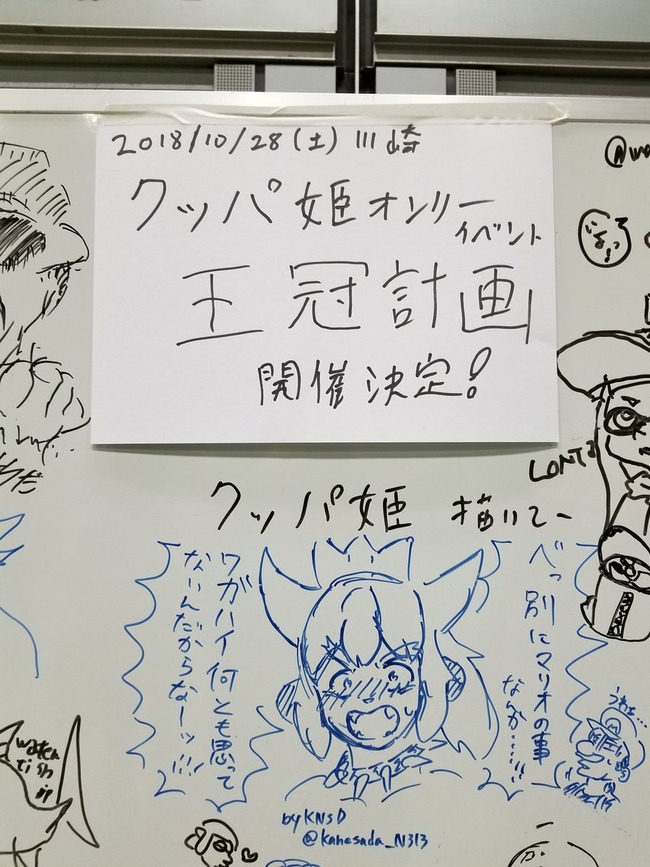 2018/10/28(土) 川崎
クッパ姫オンリー
イベント
王冠計画
開催決定!
クッパ姫 描いてー
べっ別にマリオの事
なんか……!!
ワガハイ何とも思って
ないんだからなーッ!!!
LONTS
by KNSD
@kanesada_N313